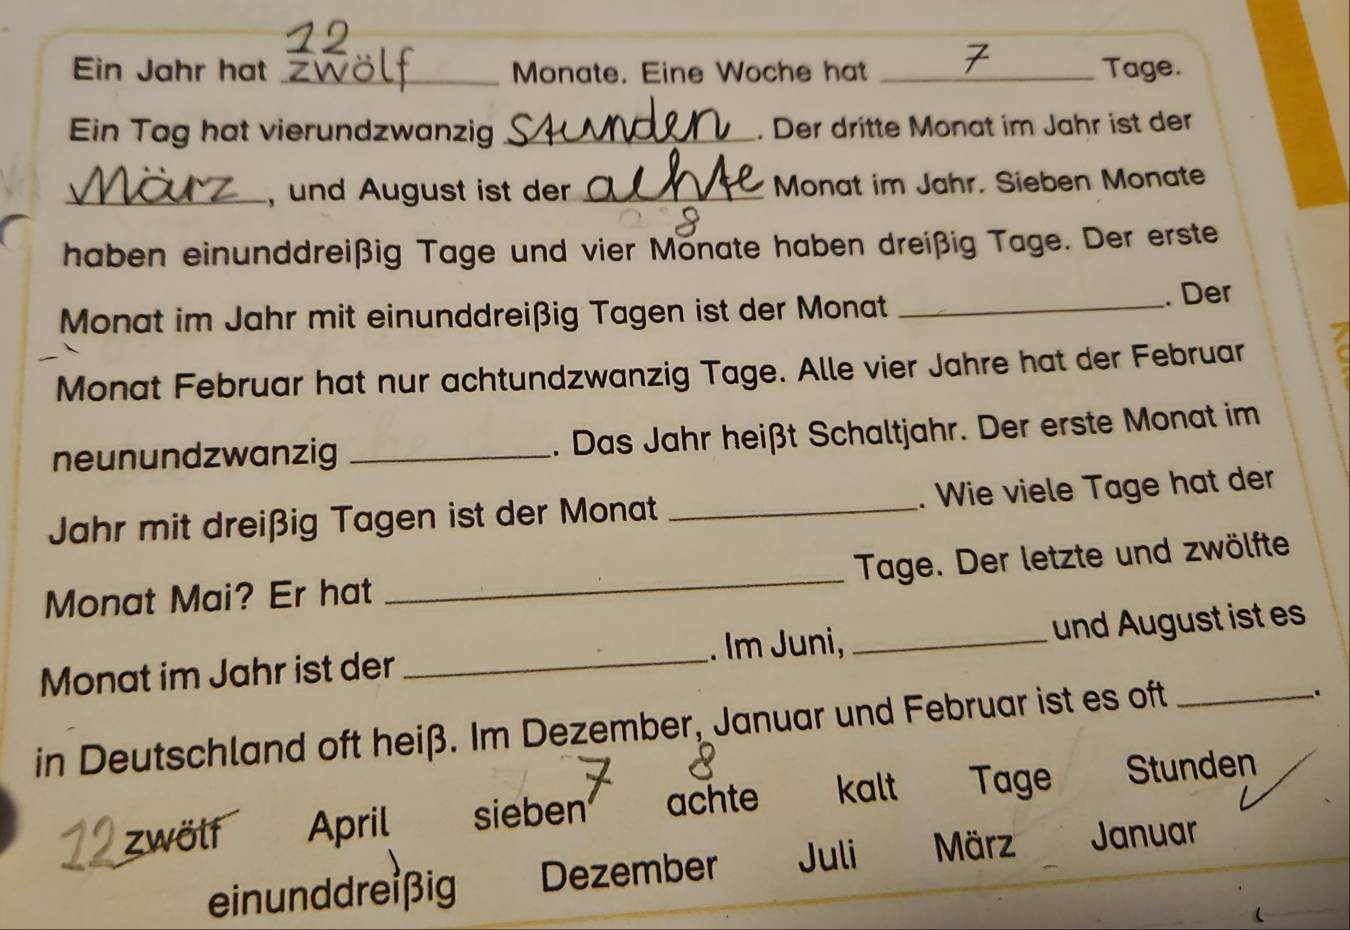 12
Ein Jahr hat zwölf Monate. Eine Woche hat 7 Tage.
Ein Tag hat vierundzwanzig Stunden. Der dritte Monat im Jahr ist der
März, und August ist der achte Monat im Jahr. Sieben Monate
8
haben einunddreißig Tage und vier Monate haben dreißig Tage. Der erste
Monat im Jahr mit einunddreißig Tagen ist der Monat ____________. Der
Monat Februar hat nur achtundzwanzig Tage. Alle vier Jahre hat der Februar
neunundzwanzig ____________. Das Jahr heißt Schaltjahr. Der erste Monat im
Jahr mit dreißig Tagen ist der Monat ____________. Wie viele Tage hat der
Monat Mai? Er hat ____________ Tage. Der letzte und zwölfte
Monat im Jahr ist der ____________. Im Juni, ____________ und August ist es
in Deutschland oft heiß. Im Dezember, Januar und Februar ist es oft ________.
12 zwölf April sieben 7 achte 8 kalt Tage Stunden
einunddreißig Dezember Juli März Januar